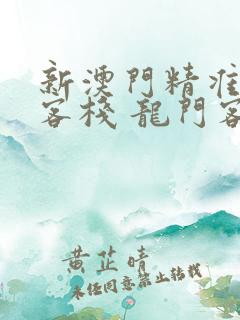 新澳門精准
客棧 龍門客
黃芷晴
未經同意禁止轉載